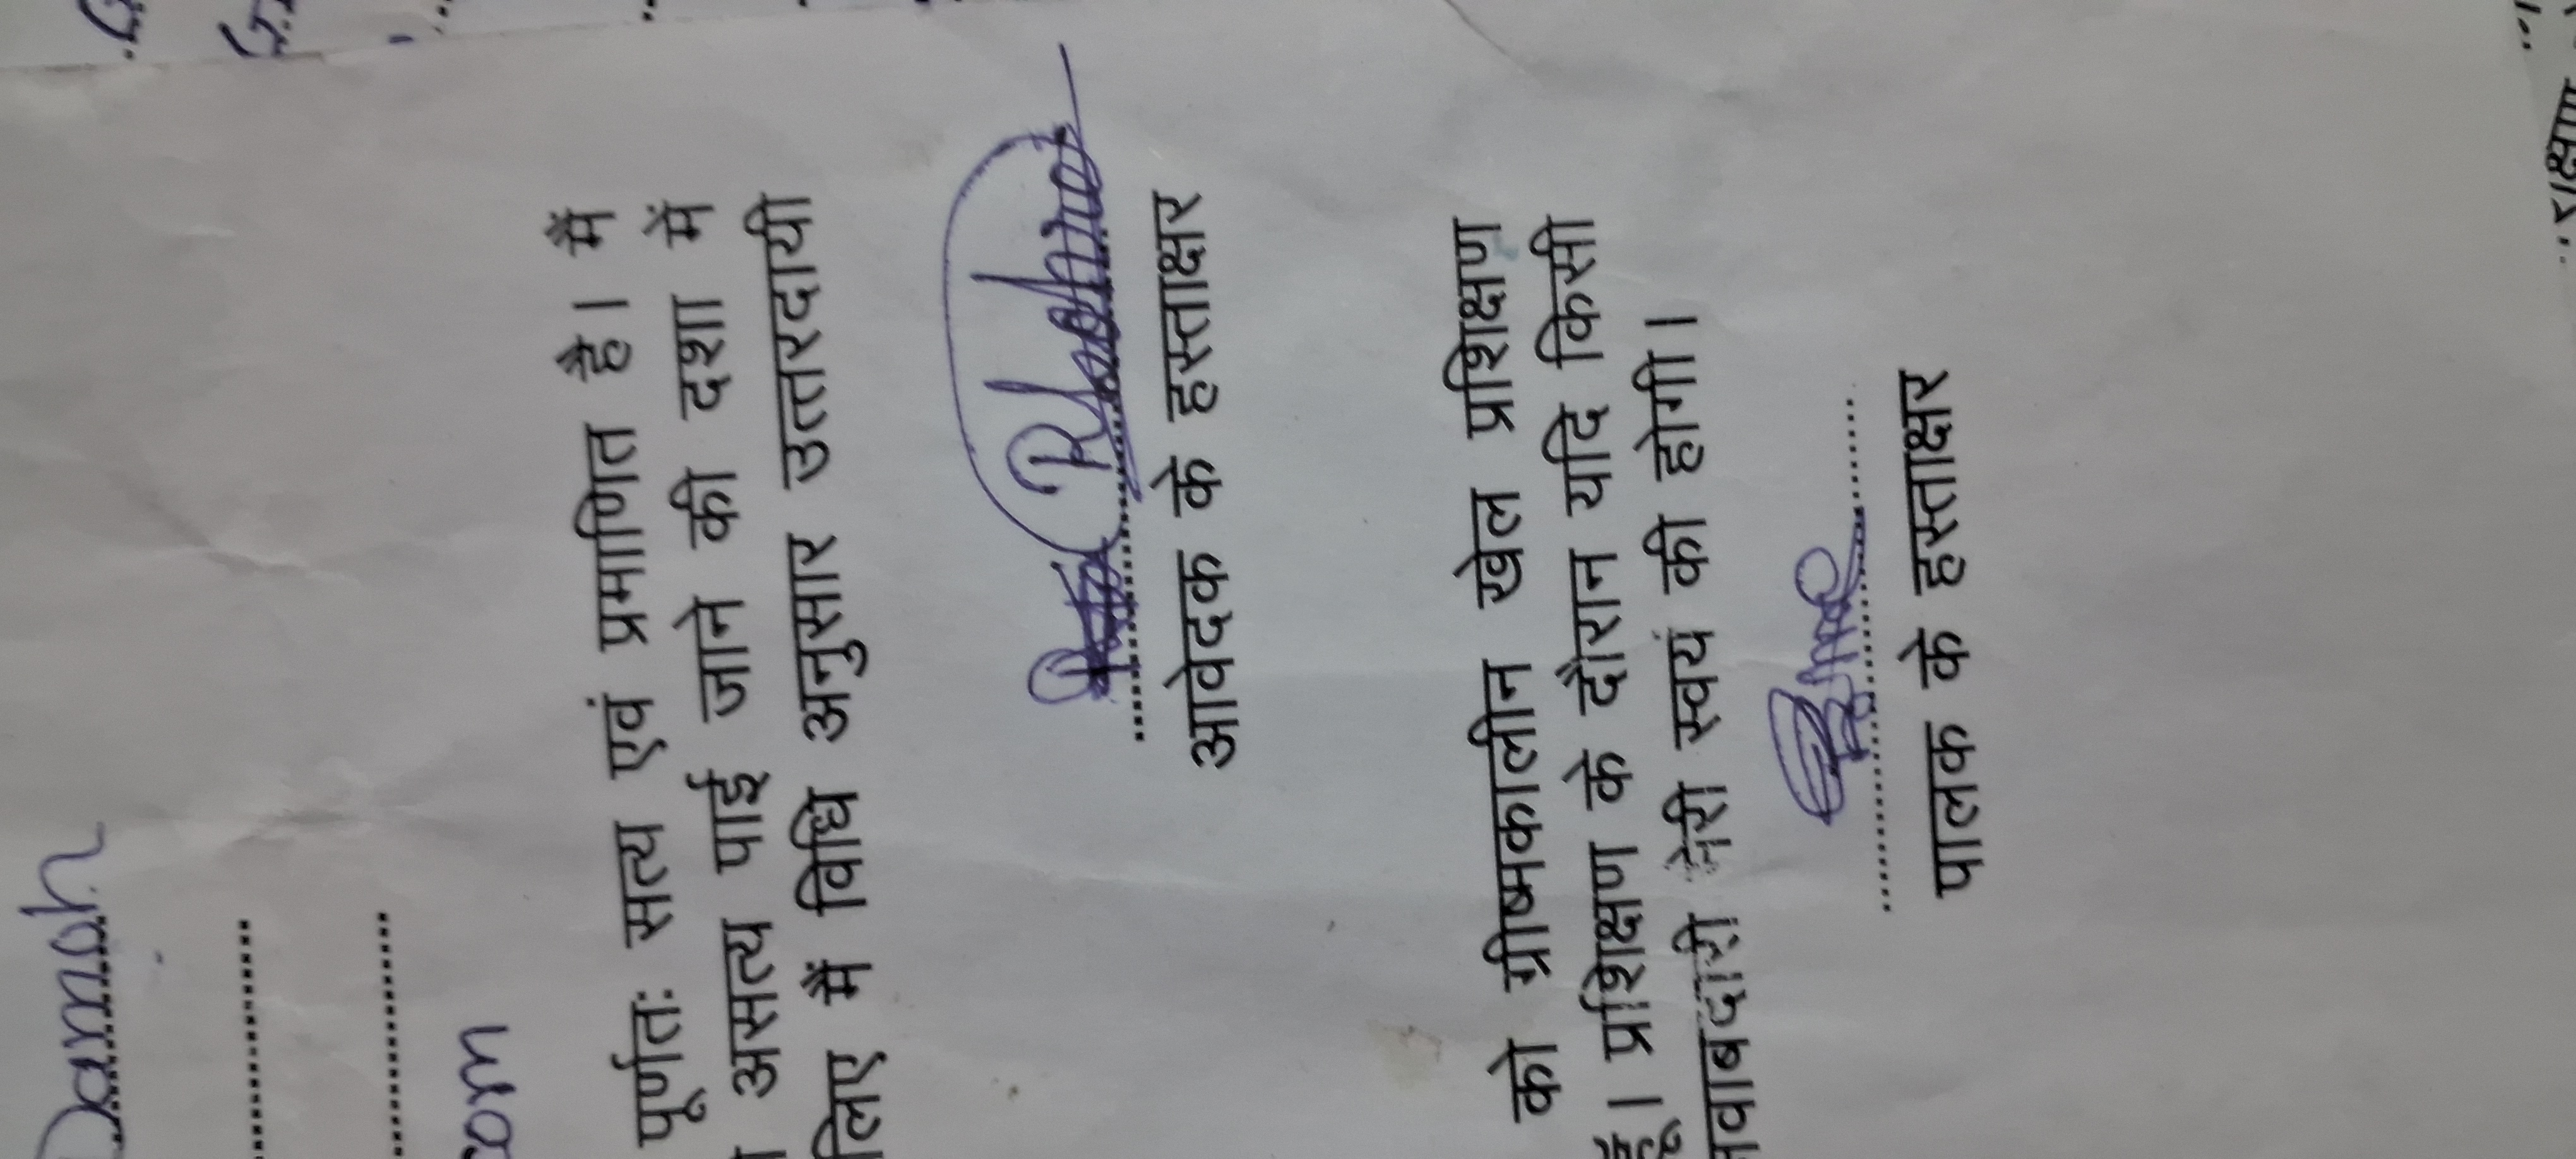 Damoh
com
पूर्णतः सत्य एवं प्रमाणित है। मैं
असत्य पाई जाने की दशा में
लिए मैं विधि अनुसार उत्तरदायी
आवेदक के हस्ताक्षर
को ग्रीष्मकालीन खेल प्रशिक्षण
हूँ। प्रशिक्षण के दौरान यदि किसी
मेरी स्वयं की होगी।
पालक के हस्ताक्षर